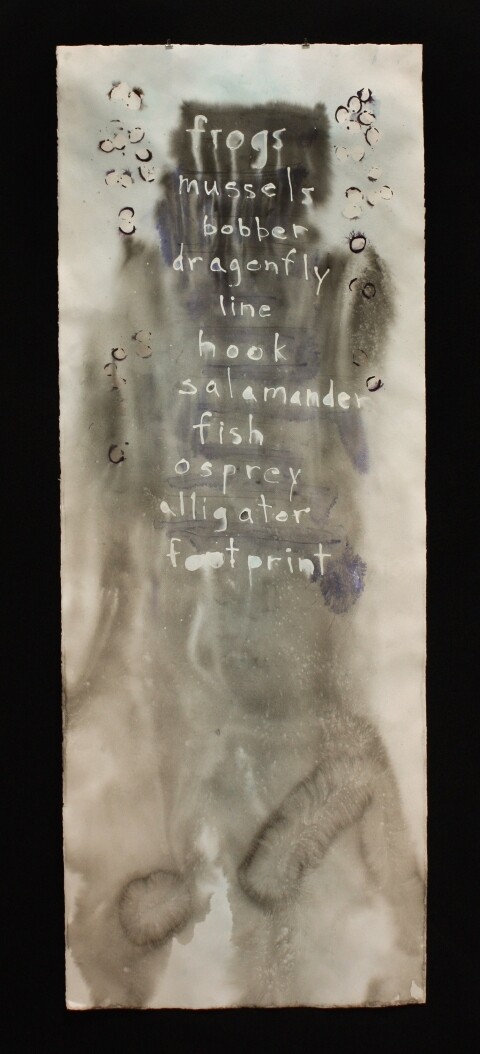 frogs
mussels
bobber
dragonfly
line
hook
salamander
fish
osprey
alligator
footprint